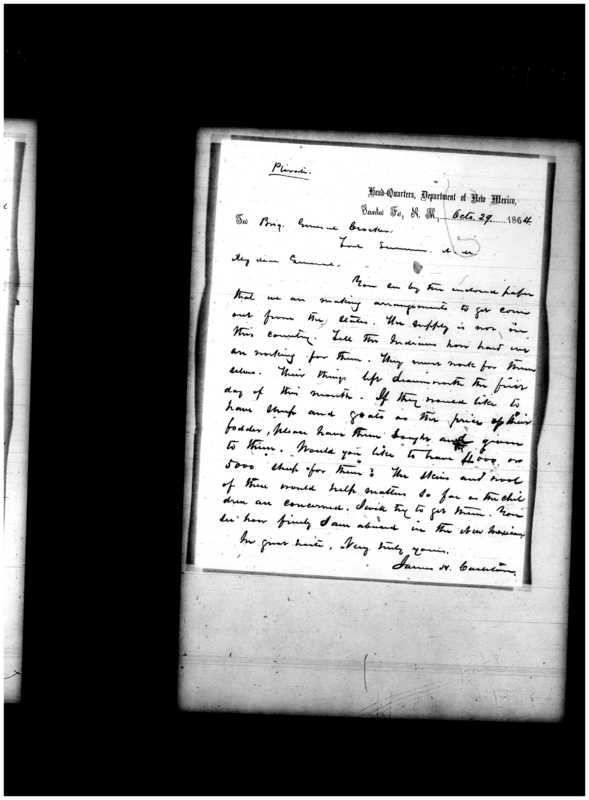 Private.
Head-Quarters, Department of New Mexico,
Santa Fé, N. M., Octo. 29, 1864
To Brig. General Crocker
Fort Sumner
My dear General.
You see by the inclosed paper
that we are making arrangements to get corn
out from the States. The supply is not in
this country. Tell the Indians how hard we
are working for them. They must work for them
selves. Their things left Leavenworth the first
day of this month. If they would like to
have sheep and goats as the price of their
fodder, please have them bought and given
to them. Would you like to have 4000 or
5000 sheep for them? The skins and wool
of these would help matters so far as the chil
dren are concerned. I will try to get them. You
see how finely I am abused in the New Mexican
In great haste, Very truly yours,
James H. Carleton